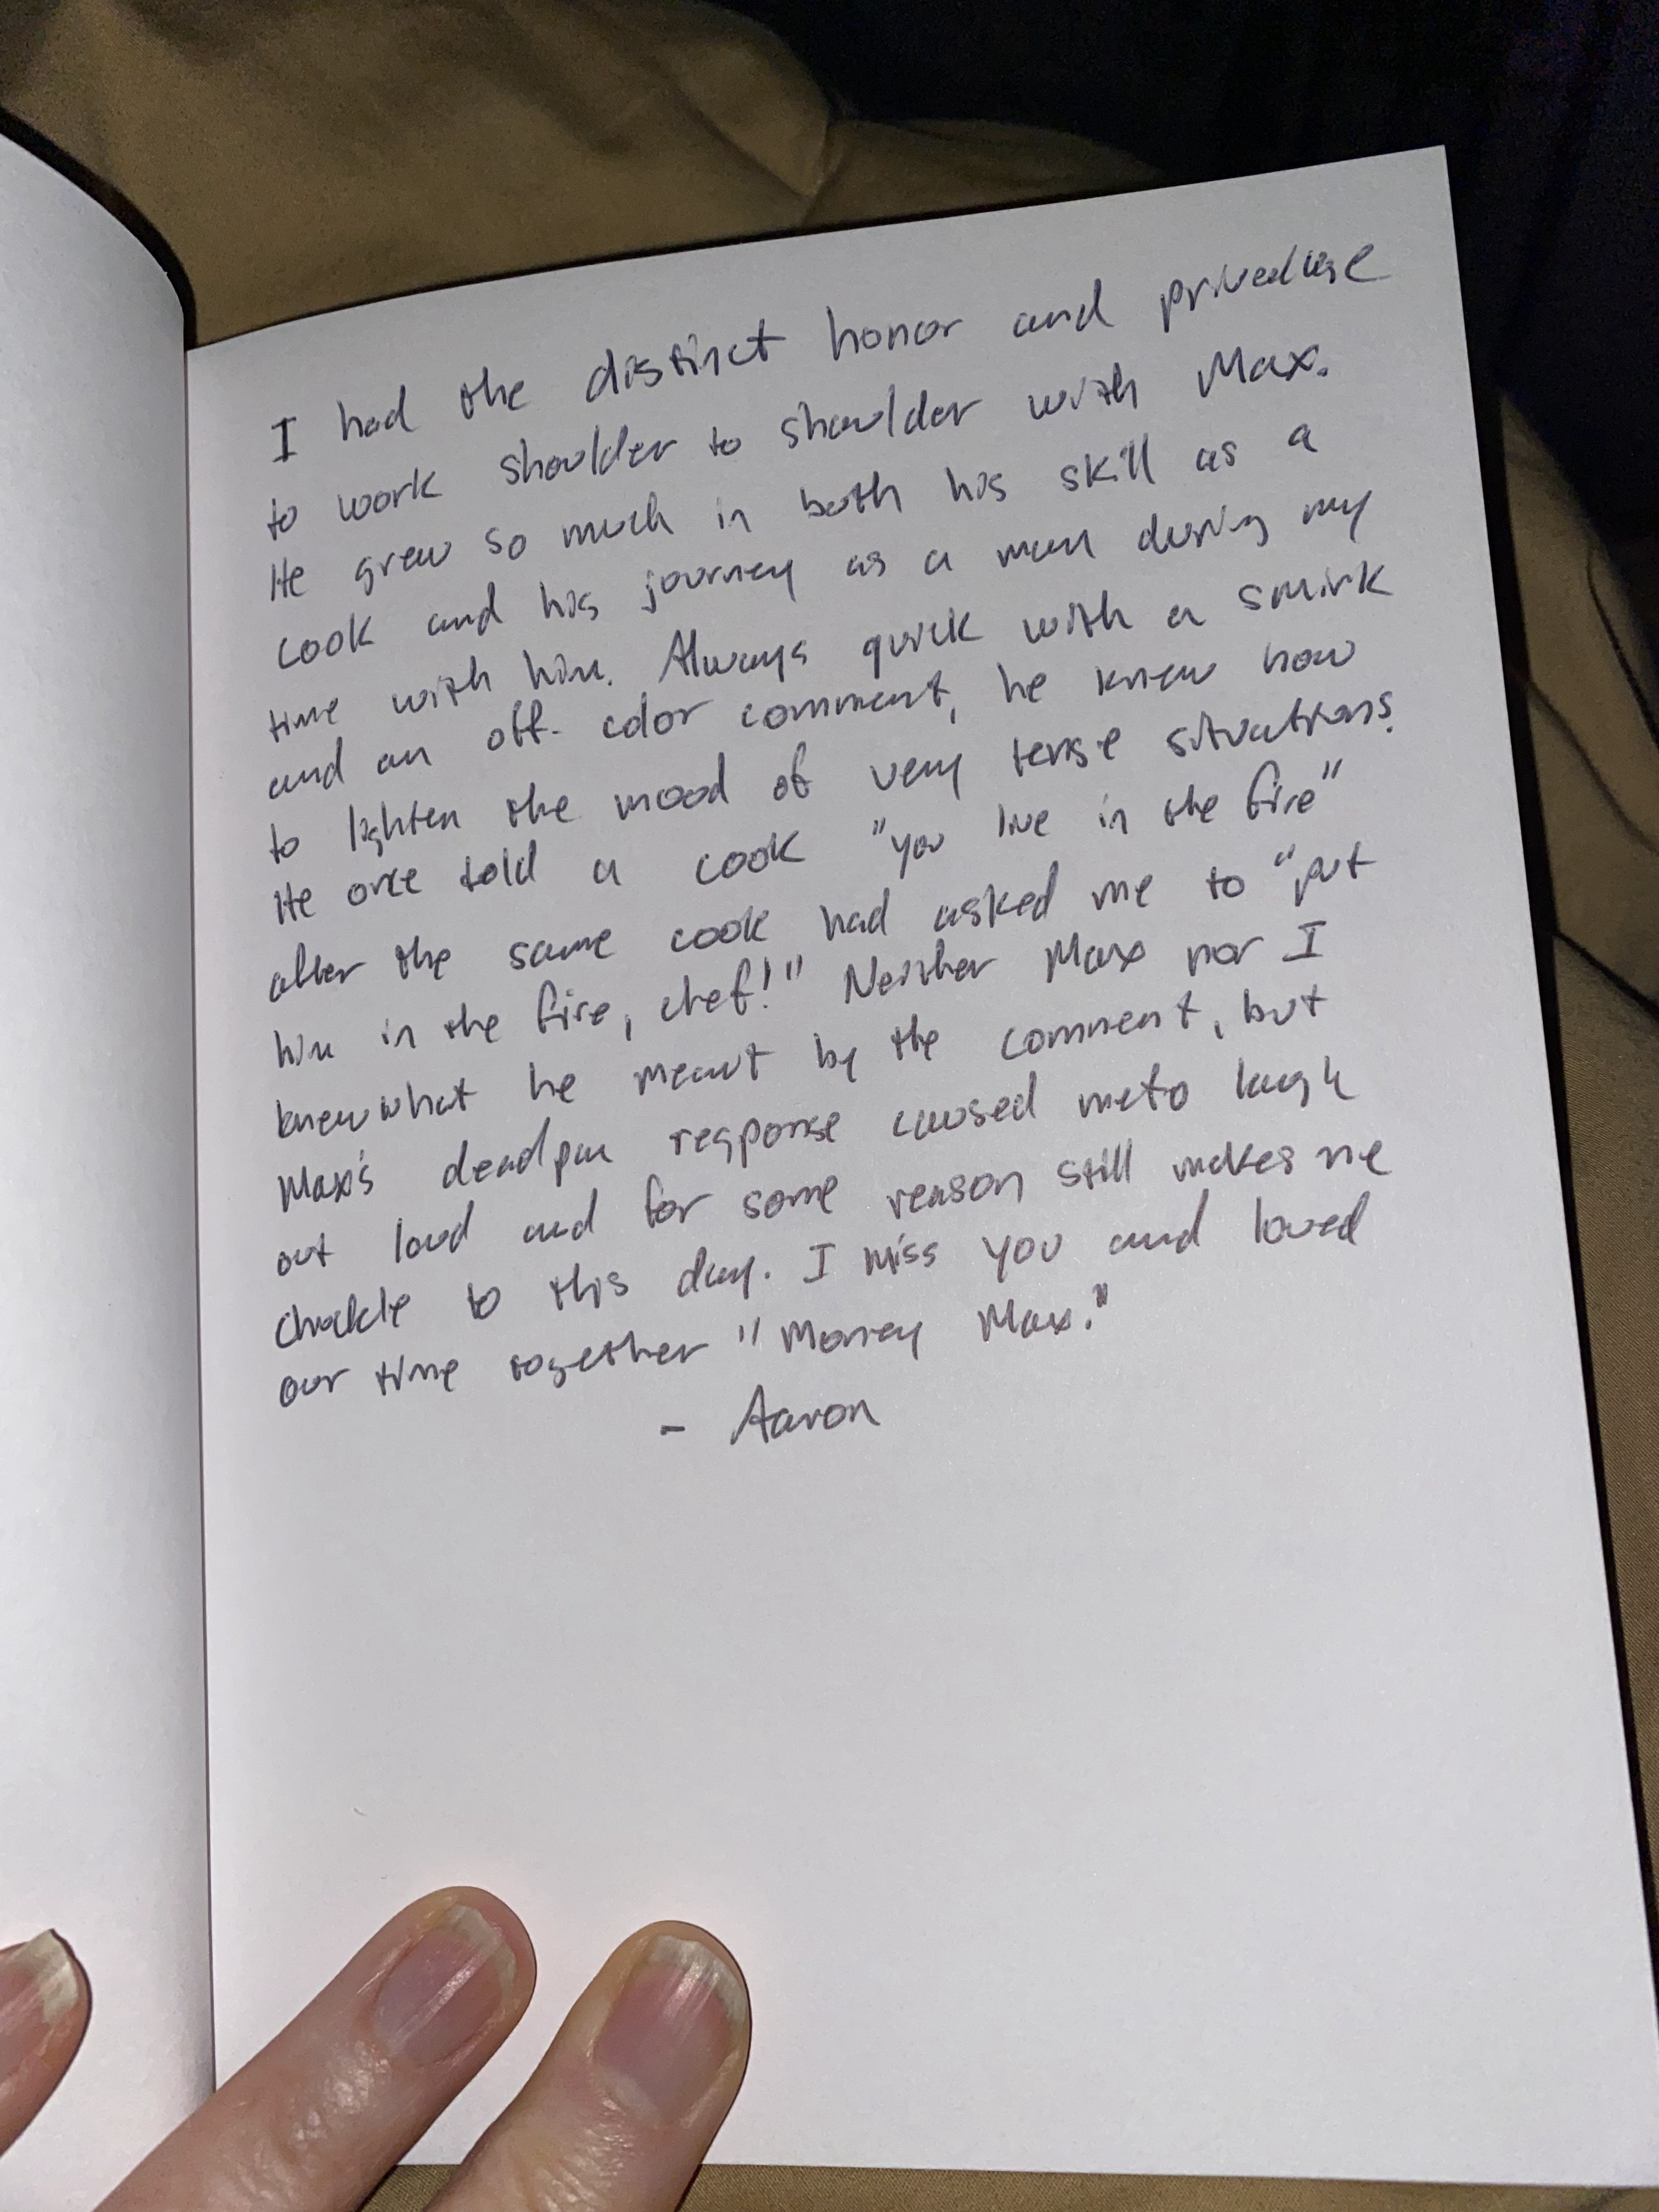 I had the distinct honor and privedlige
to work shoulder to shoulder with Max.
He grew so much in both his skill as a
cook and his journey as a man during my
time with him. Always quick with a smirk
and an off-color comment, he knew how
to lighten the mood of very tense situations.
He once told a cook "you live in the fire"
after the same cook had asked me to "put
him in the fire, chef!" Neither Max nor I
knew what he meant by the comment, but
Max's deadpan response caused me to laugh
out loud and for some reason still makes me
chuckle to this day. I miss you and loved
our time together "Money Max."
- Aaron